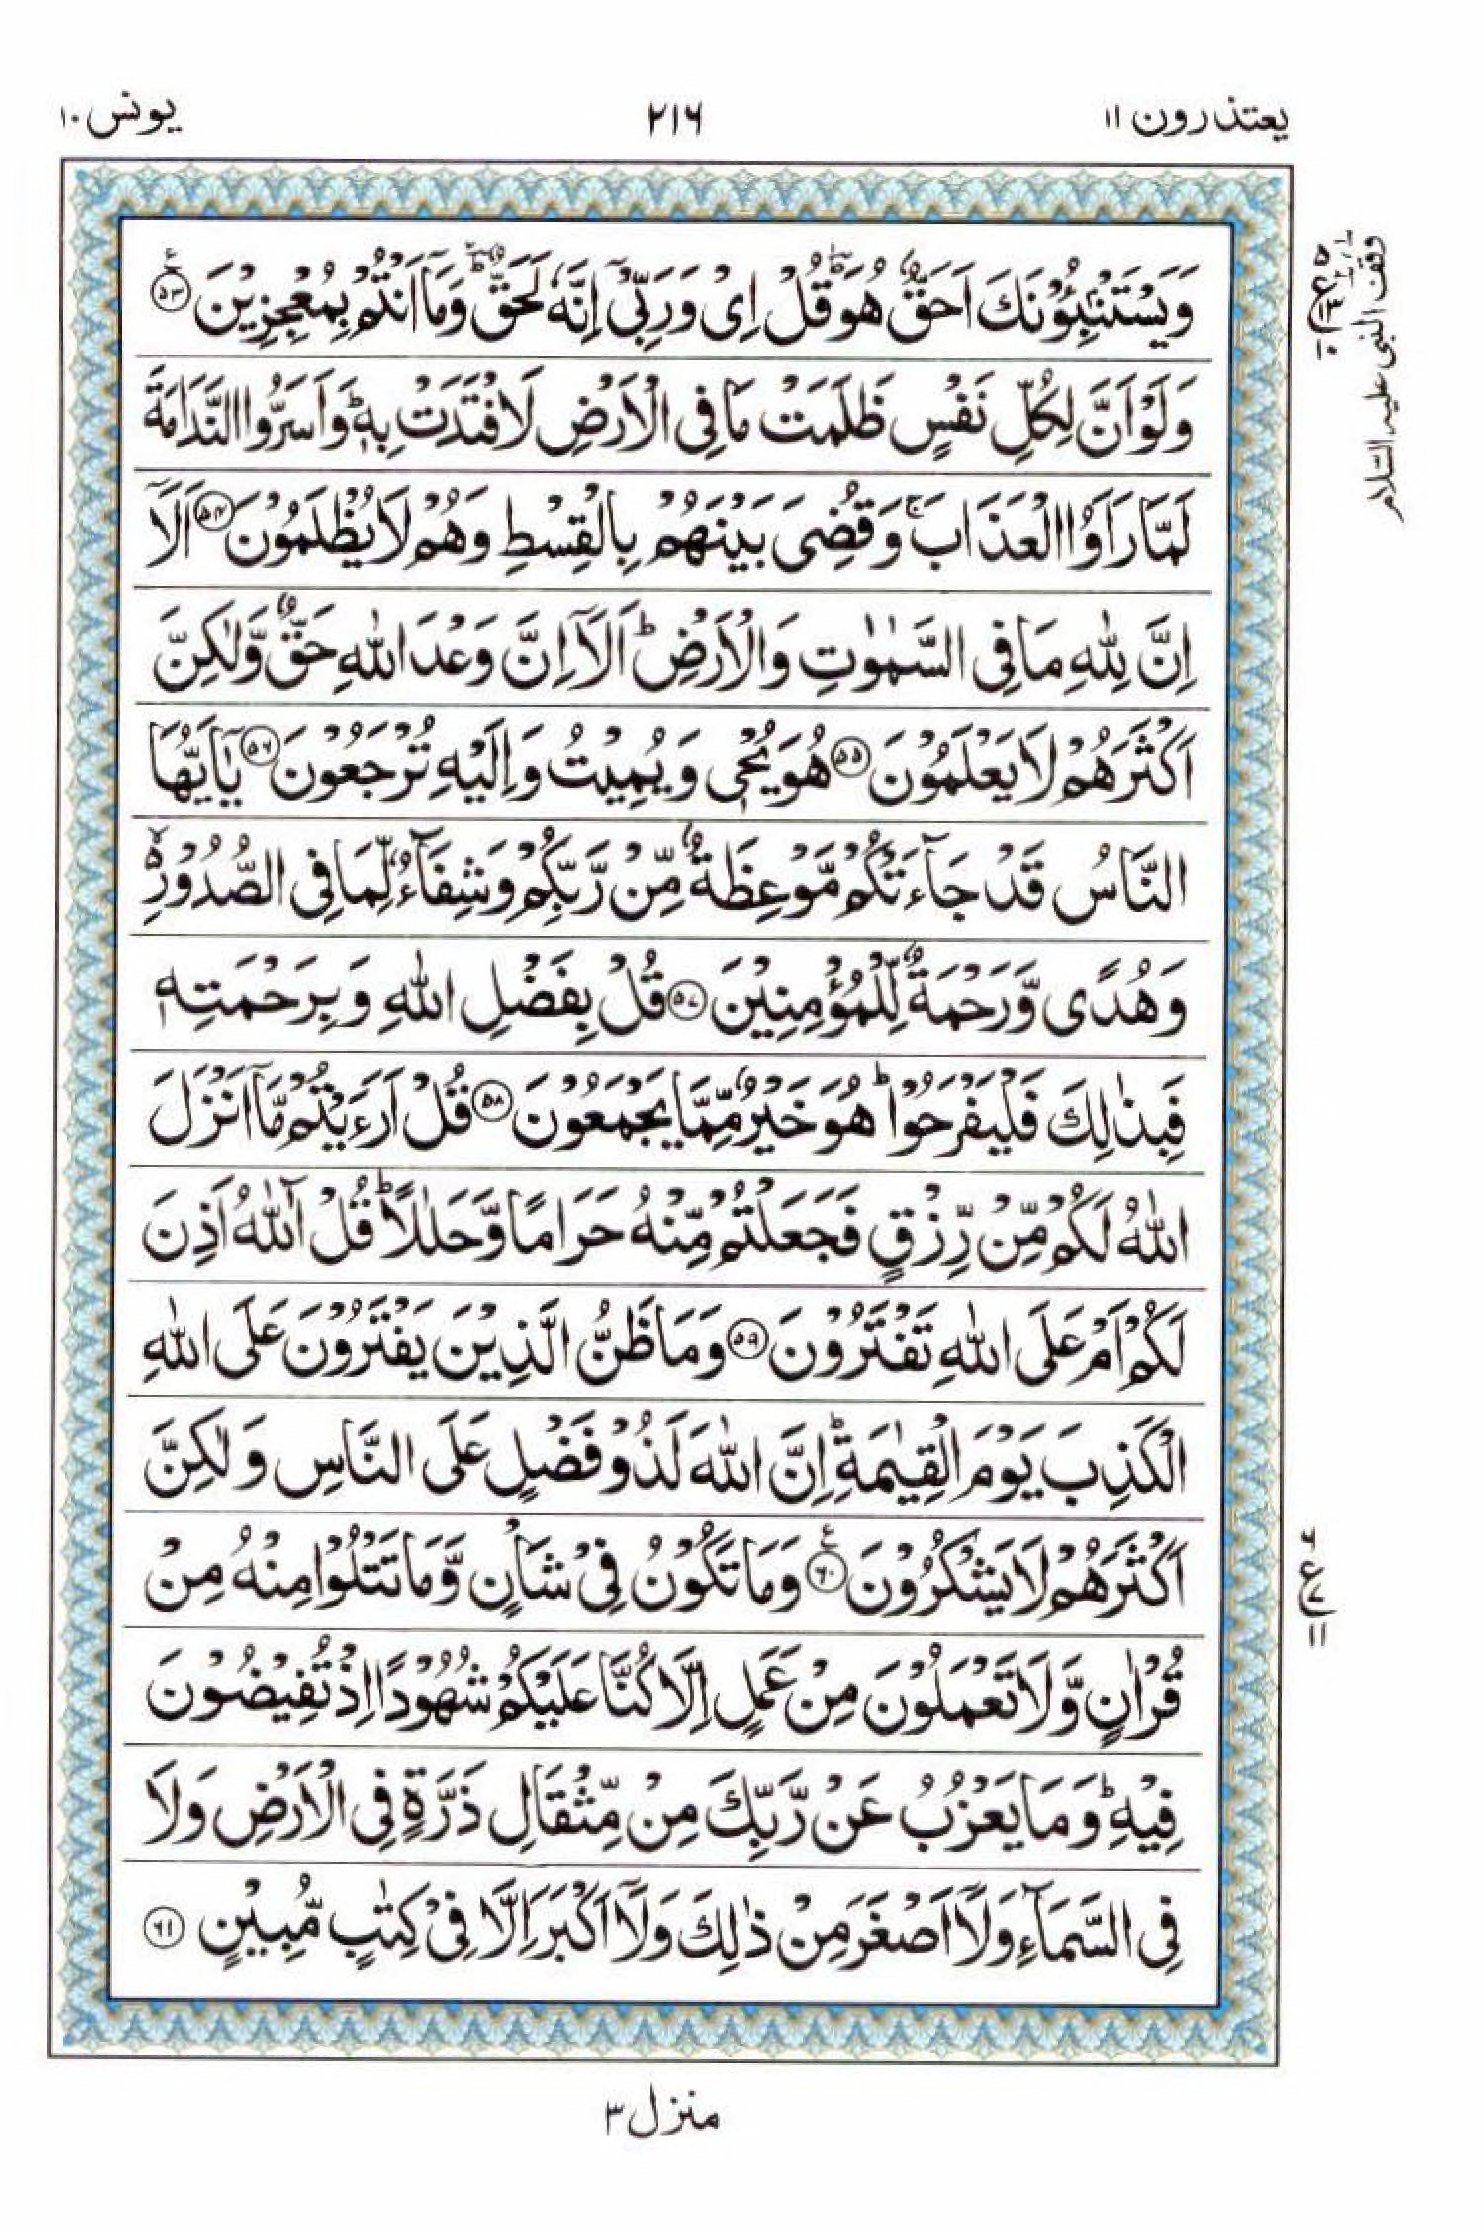 يعتذرون ١١
٢١٦
يونس ١٠
وَيَسْتَنْۢبِـُٔوْنَكَ اَحَقٌّ هُوَ ؕ قُلْ اِیْ وَرَبِّیْۤ اِنَّهٗ لَحَقٌّ ؔؕ وَمَاۤ اَنْتُمْ بِمُعْجِزِيْنَ ﴿۵۳﴾
وَلَوْ اَنَّ لِكُلِّ نَفْسٍ ظَلَمَتْ مَا فِی الْاَرْضِ لَافْتَدَتْ بِهٖ ؕ وَاَسَرُّوا النَّدَامَةَ
لَمَّا رَاَوُا الْعَذَابَ ۚ وَقُضِیَ بَيْنَهُمْ بِالْقِسْطِ وَهُمْ لَا يُظْلَمُوْنَ ﴿۵۴﴾ اَلَاۤ
اِنَّ لِلّٰهِ مَا فِی السَّمٰوٰتِ وَالْاَرْضِ ؕ اَلَاۤ اِنَّ وَعْدَ اللّٰهِ حَقٌّ وَّلٰكِنَّ
اَكْثَرَهُمْ لَا يَعْلَمُوْنَ ﴿۵۵﴾ هُوَ يُحْیٖ وَيُمِيْتُ وَاِلَيْهِ تُرْجَعُوْنَ ﴿۵۶﴾ يٰۤاَيُّهَا
النَّاسُ قَدْ جَآءَتْكُمْ مَّوْعِظَةٌ مِّنْ رَّبِّكُمْ وَشِفَآءٌ لِّمَا فِی الصُّدُوْرِ ۙ۬
وَهُدًی وَّرَحْمَةٌ لِّلْمُؤْمِنِيْنَ ﴿۵۷﴾ قُلْ بِفَضْلِ اللّٰهِ وَبِرَحْمَتِهٖ
فَبِذٰلِكَ فَلْيَفْرَحُوْا ؕ هُوَ خَيْرٌ مِّمَّا يَجْمَعُوْنَ ﴿۵۸﴾ قُلْ اَرَءَيْتُمْ مَّاۤ اَنْزَلَ
اللّٰهُ لَكُمْ مِّنْ رِّزْقٍ فَجَعَلْتُمْ مِّنْهُ حَرَامًا وَّحَلٰلًا ؕ قُلْ آٰللّٰهُ اَذِنَ
لَكُمْ اَمْ عَلَی اللّٰهِ تَفْتَرُوْنَ ﴿۵۹﴾ وَمَا ظَنُّ الَّذِيْنَ يَفْتَرُوْنَ عَلَی اللّٰهِ
الْكَذِبَ يَوْمَ الْقِيٰمَةِ ؕ اِنَّ اللّٰهَ لَذُوْ فَضْلٍ عَلَی النَّاسِ وَلٰكِنَّ
اَكْثَرَهُمْ لَا يَشْكُرُوْنَ ﴿۶۰﴾ وَمَا تَكُوْنُ فِیْ شَاْنٍ وَّمَا تَتْلُوْا مِنْهُ مِنْ
قُرْاٰنٍ وَّلَا تَعْمَلُوْنَ مِنْ عَمَلٍ اِلَّا كُنَّا عَلَيْكُمْ شُهُوْدًا اِذْ تُفِيْضُوْنَ
فِيْهِ ؕ وَمَا يَعْزُبُ عَنْ رَّبِّكَ مِنْ مِّثْقَالِ ذَرَّةٍ فِی الْاَرْضِ وَلَا
فِی السَّمَآءِ وَلَاۤ اَصْغَرَ مِنْ ذٰلِكَ وَلَاۤ اَكْبَرَ اِلَّا فِیْ كِتٰبٍ مُّبِيْنٍ ﴿۶۱﴾
وقف النبی علیہ السّلام
منزل ٣